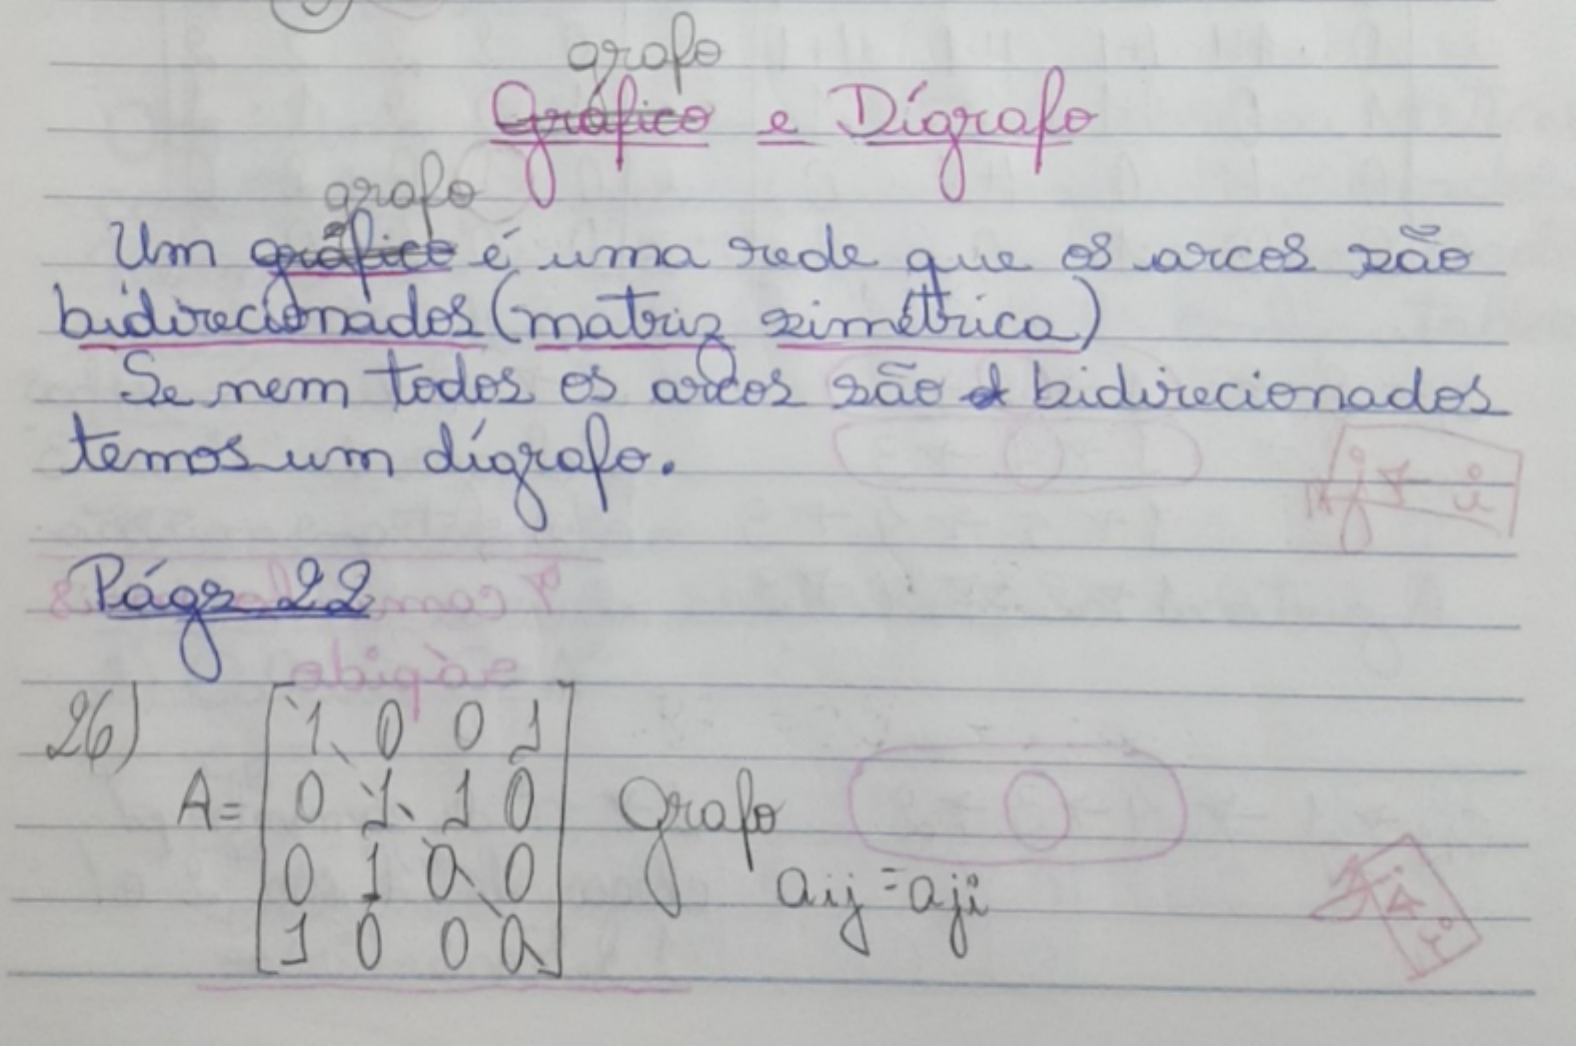 grafo
Gráfico e Dígrafo
grafo
Um gráfico é uma rede que os arcos são
bidirecionados (matriz simétrica)
Se nem todos os arcos são bidirecionados
temos um dígrafo.
Págs 22
26)
1 0 0 1
A= 0 1 1 0 Grafo
0 1 0 0 aij = aji
1 0 0 0